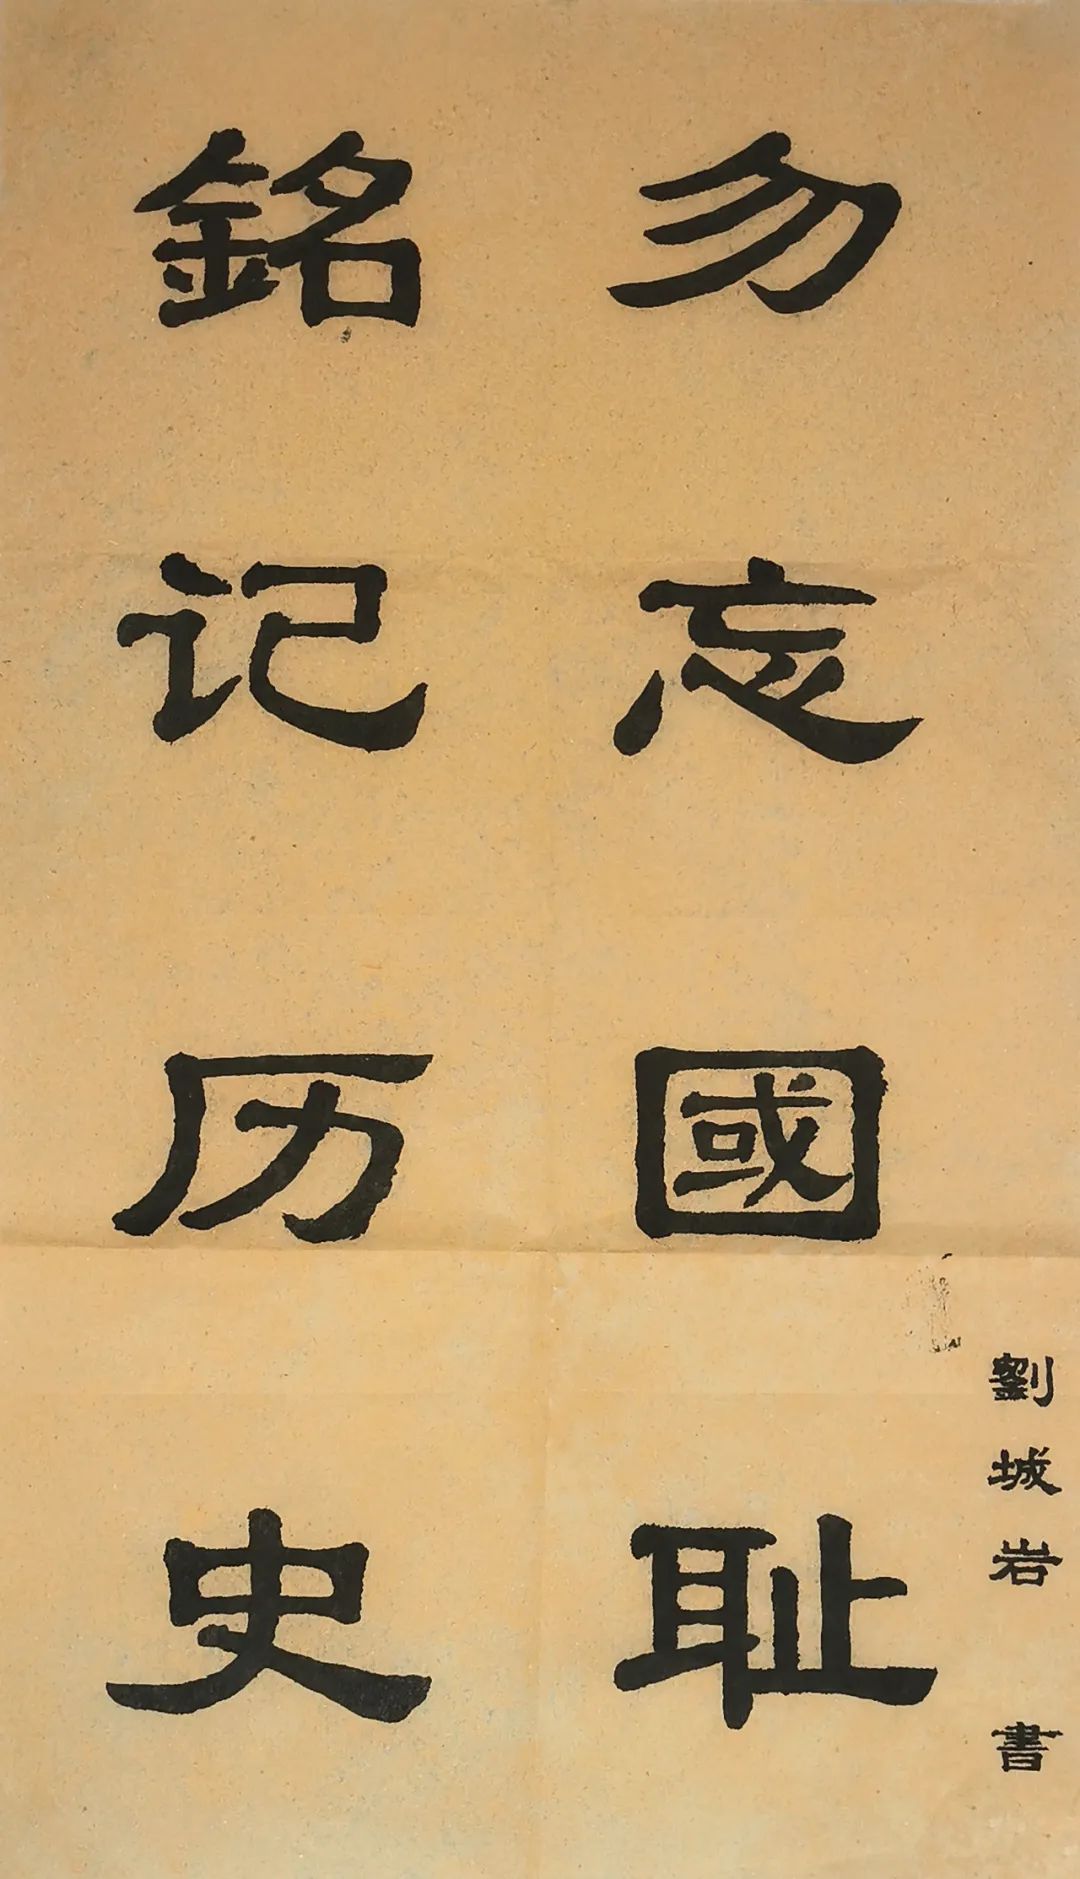 勿忘國耻
銘记历史
劉城岩 書